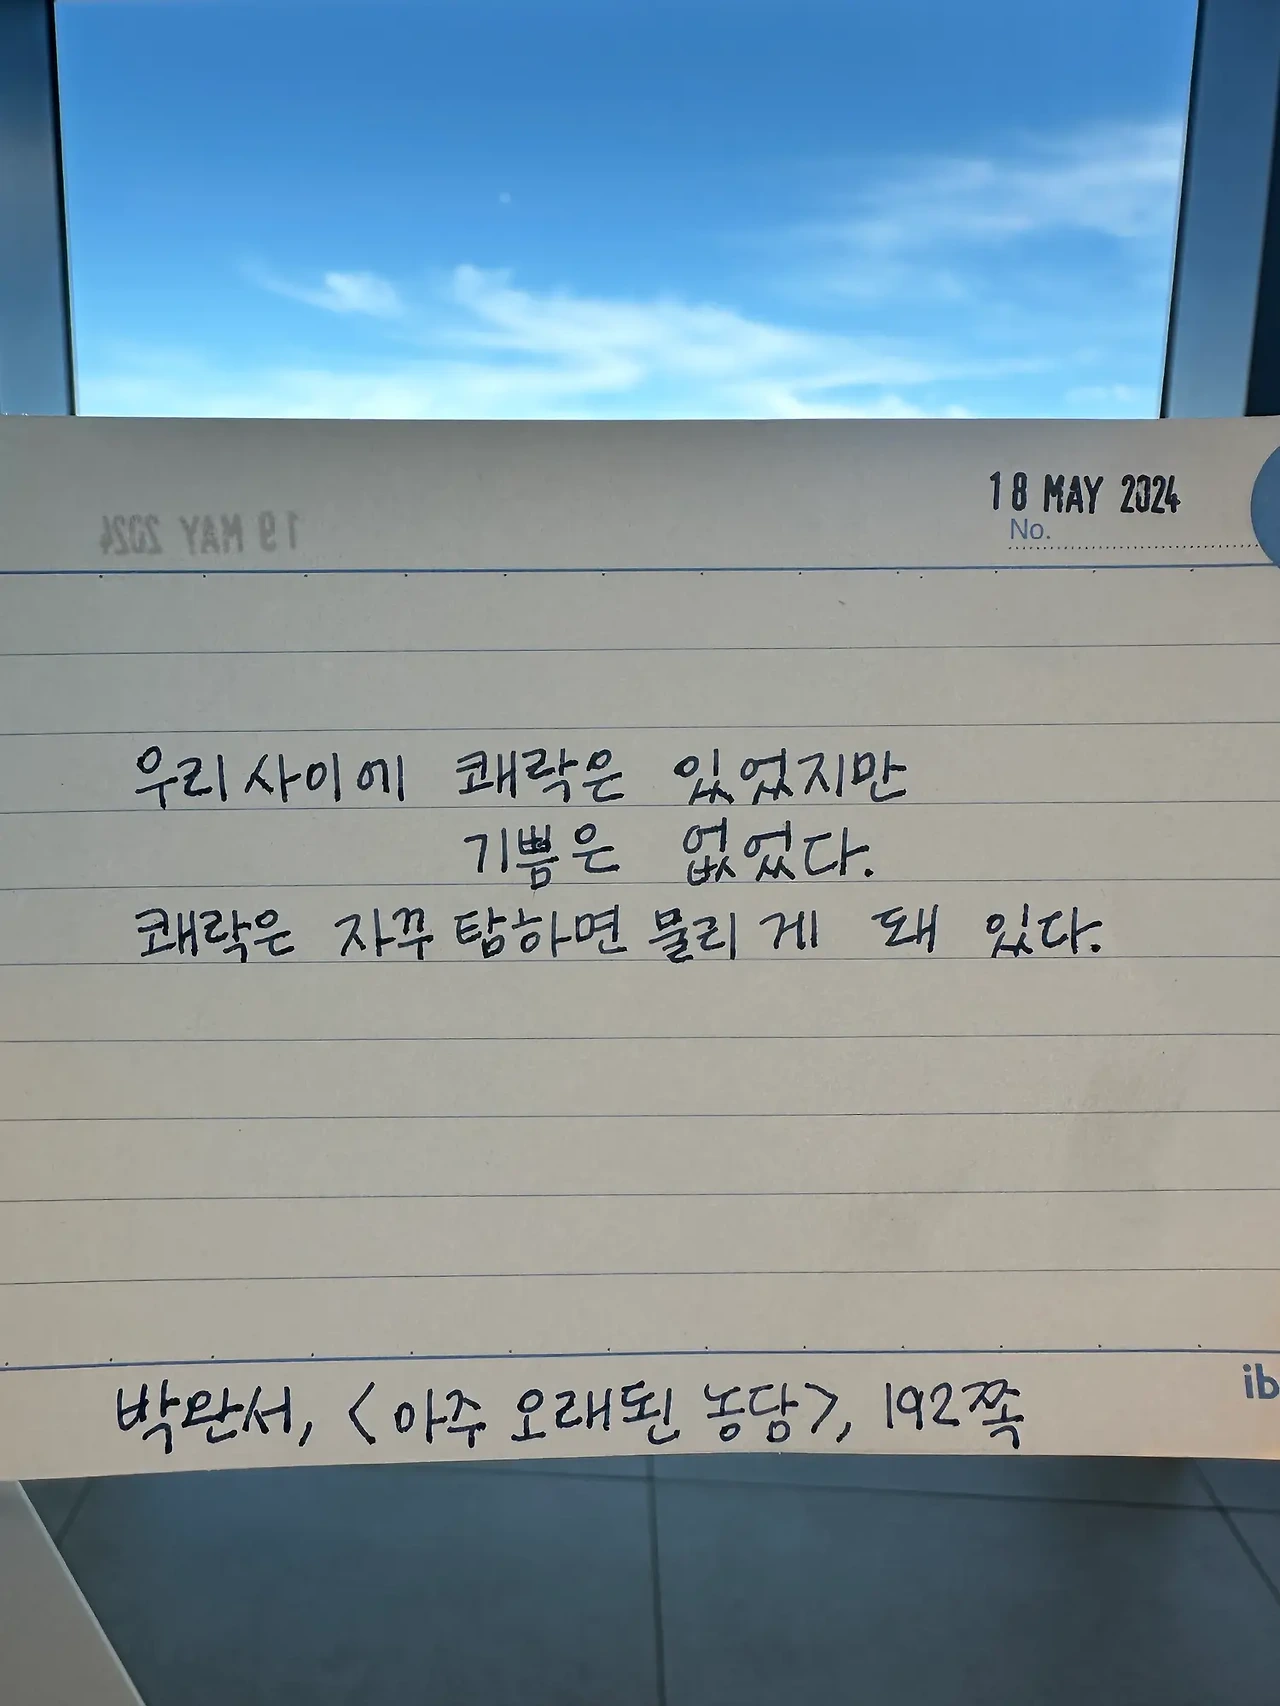 18 MAY 2024
19 MAY 2024
No.
우리 사이에 쾌락은 있었지만
기쁨은 없었다.
쾌락은 자꾸 탐하면 물리게 돼 있다.
ib
박완서, <아주 오래된 농담>, 192쪽